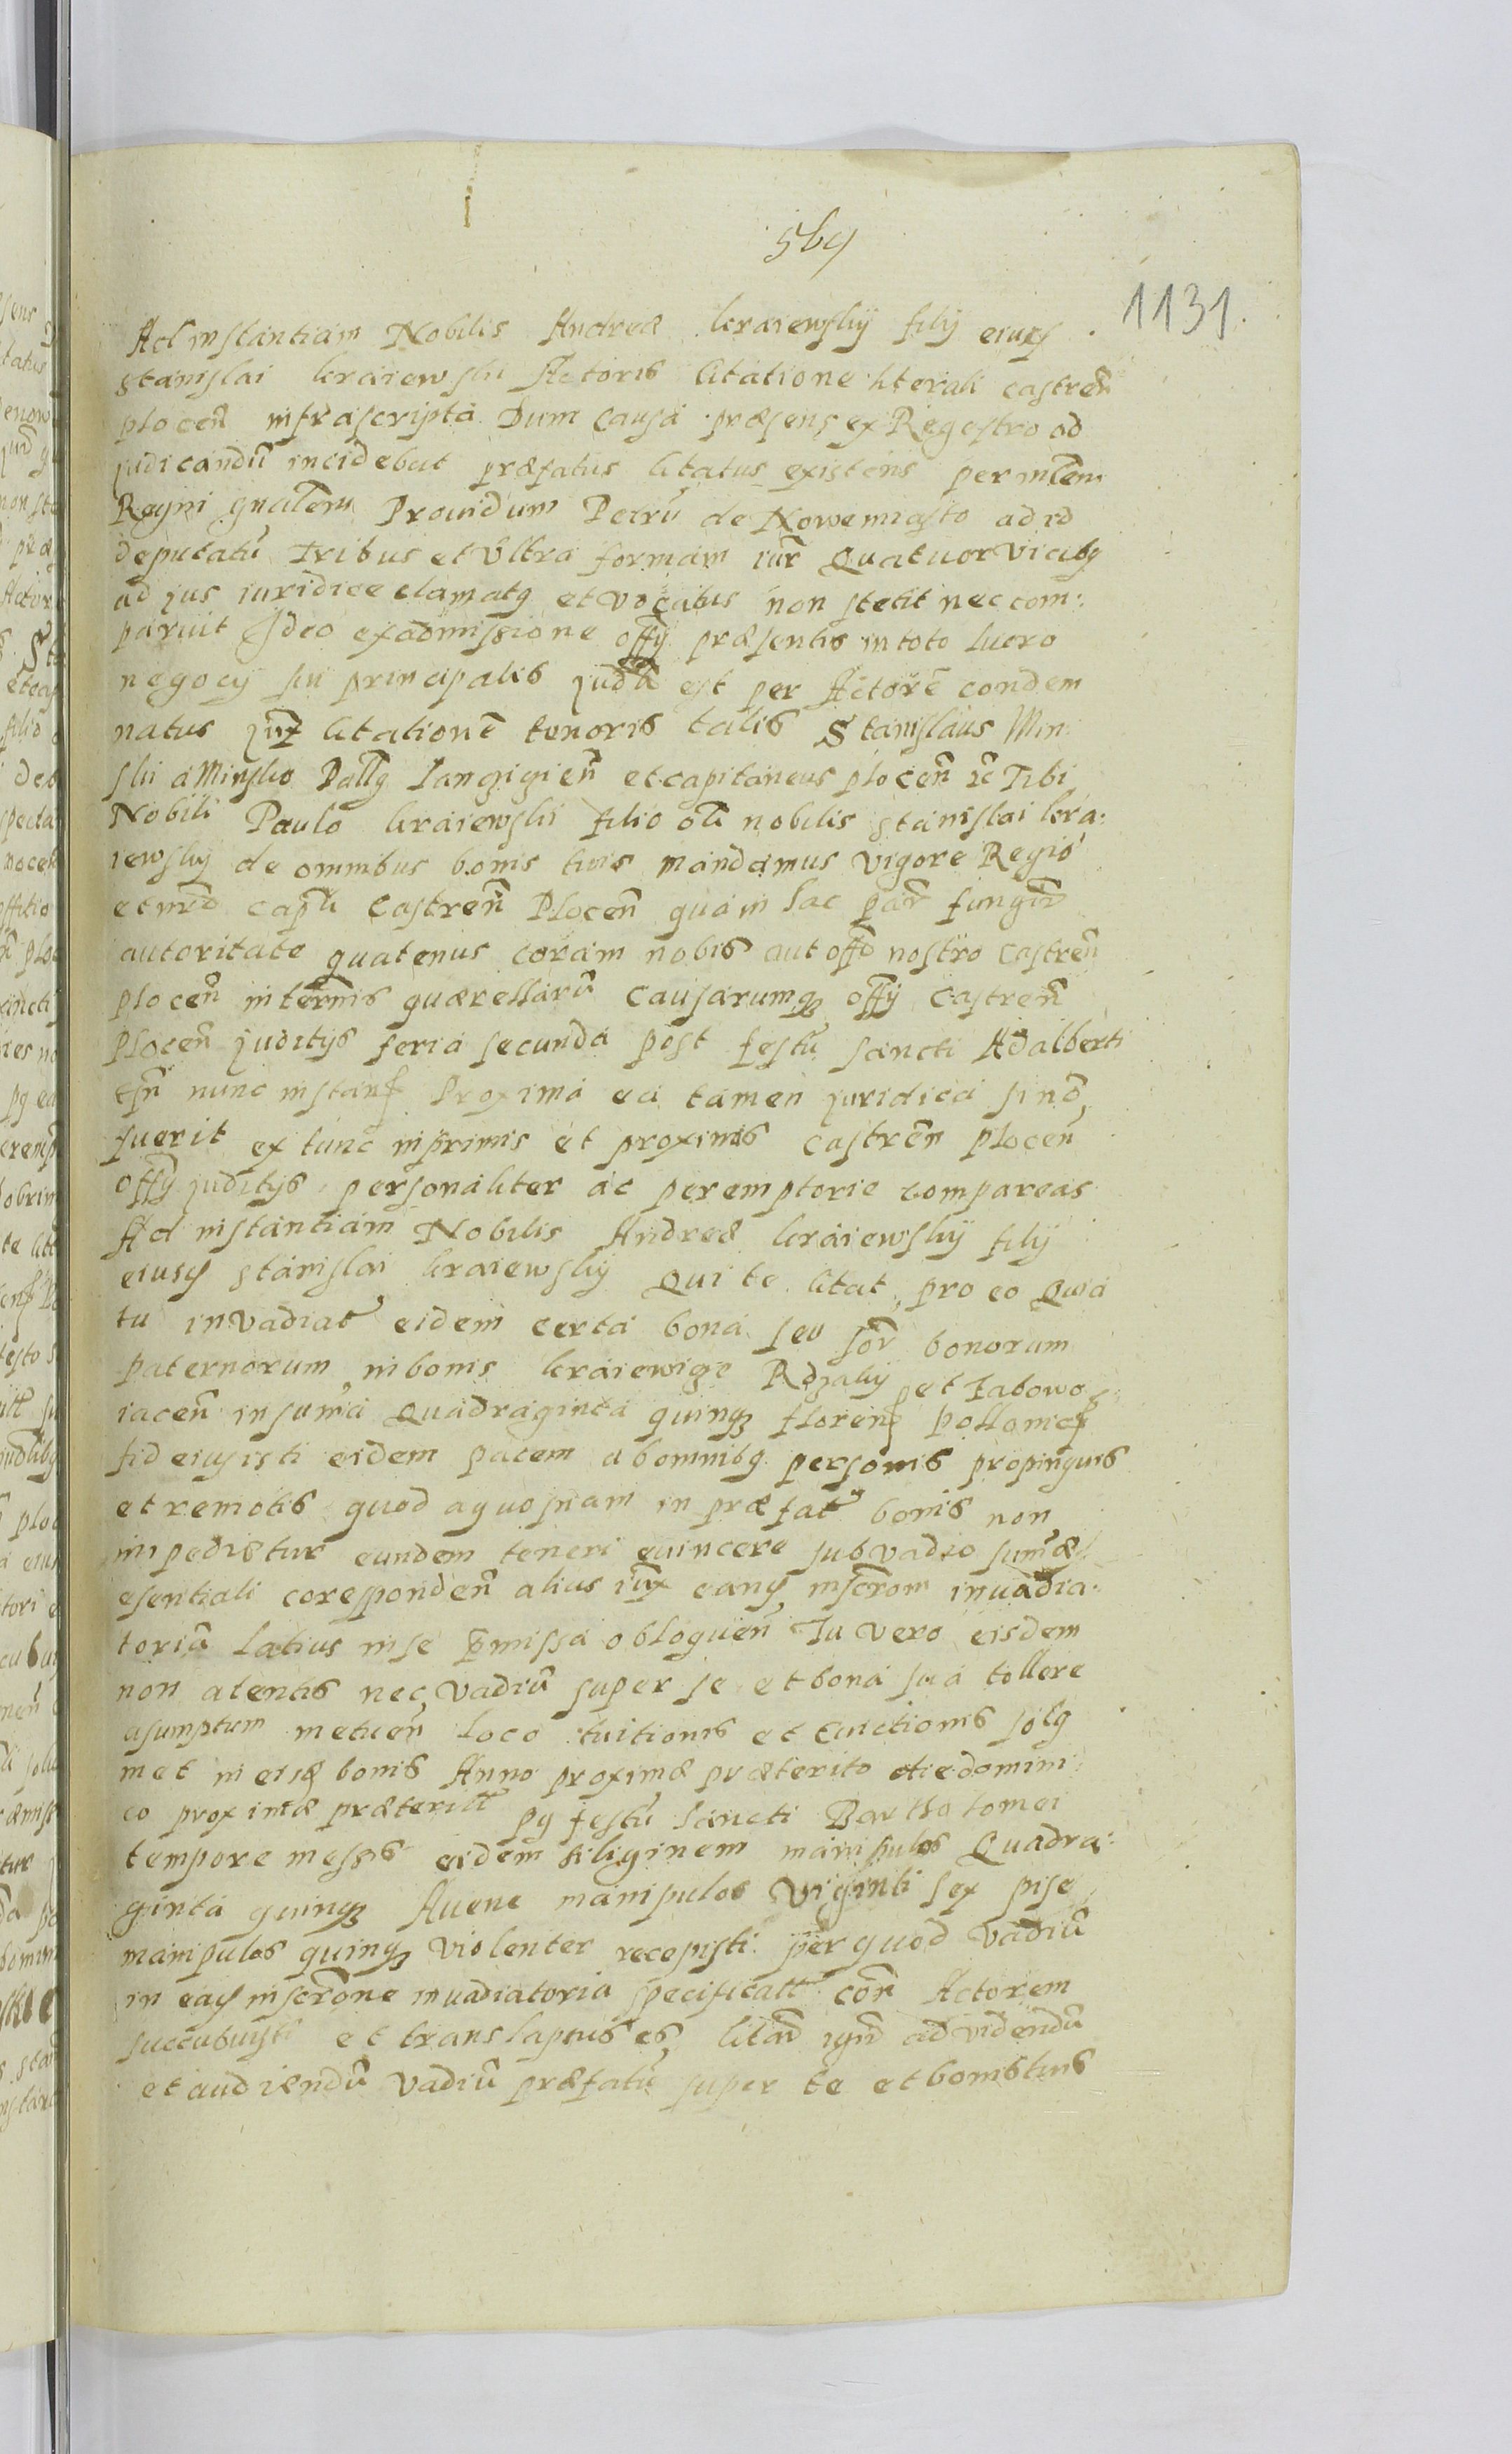 569
1131.
Ad instantiam Nobilis Andreæ Kraiewskij filij eiusd
Stanislai Kraiewski Actoris Citatione literali castren̄
plocen̄ infrascripta Dum Causa præsens ex Regestro ad
judicandū incidebat præfatus Citatus existens per mlem
Regni gnalem Prouidum Petrū de Nowemiasto ad id
deputatū tribus et Ultra formam iur̄ Quatuor Vicibg
ad jus iuridice clamatg et vocatus non stetit nec com:
paruit Ideo ex admissione offij præsentis in toto lucro
negocij sui principalis judā est per Actorē condem
natus jux citationē tenoris talis Stanislaus Min
ski a Minsko Pallg Langigien̄ et capitaneus plocen̄ rc̄ Tibi
Nobili Paulo Kraiewski filio oli nobilis Stanislai Kra:
iewskij de omnibus bonis tuis mandamus Vigore Regio
et nrā capli Castren̄ Plocen̄ qua in hac par̄ fungir̄
autoritate quatenus coram nobis aut offo nostro Castren̄
plocen̄ in termis quærellarū Causarumq offij Castren̄
Plocen̄ juditijs feria secunda post festū sancti Adalberti
nunc instan Proxima ea tamen juridica si nō
fuerit ex tunc in primis et proximis castren̄ plocen̄
offij juditijs personaliter ac peremptorie compareas
Ad instantiam Nobilis Andreæ Kraiewskij filij
eiusd Stanislai Kraiewskij Qui te Citat pro eo Quia
tu invadiat eidem certa bona seu sor̄ bonorum
paternorum in bonis Kraiewige Rdzaly et Jabowo
iacen̄ in sum̄a Quadraginta quinq floren pollonic
fideiusisti eidem pacem ab omnibg personis propinquis
et remotis quod a quo suam in præfat bonis non
impedietur eundem teneri euincere sub vadio sum̄æ
esentiali coresponden̄ alius iux eand inscrōm inuadia:
toriā latius in se pmissa obloquen̄ Tu vero eisdem
non atentis nec vadiū super se et bona sua tollere
asumptum metuen̄ loco tuitionis et Euictionis solg
met in eisd bonis Anno proximæ præterito die domini
co proximæ præterill pg festū Sancti Bartholomei
tempore messis eidem siliginem manipulos Quadra:
ginta quinq Auene manipulos Viginti sex pise
manipulos quinq violenter recepisti per quod vadiū
in ead inscrōne inuadiatoria specificatt con̄ Actorem
succubuisti et translapsus es, Citar̄ igr̄ ad videndū
et audiendū vadiū præfatū super te et bonis tuis